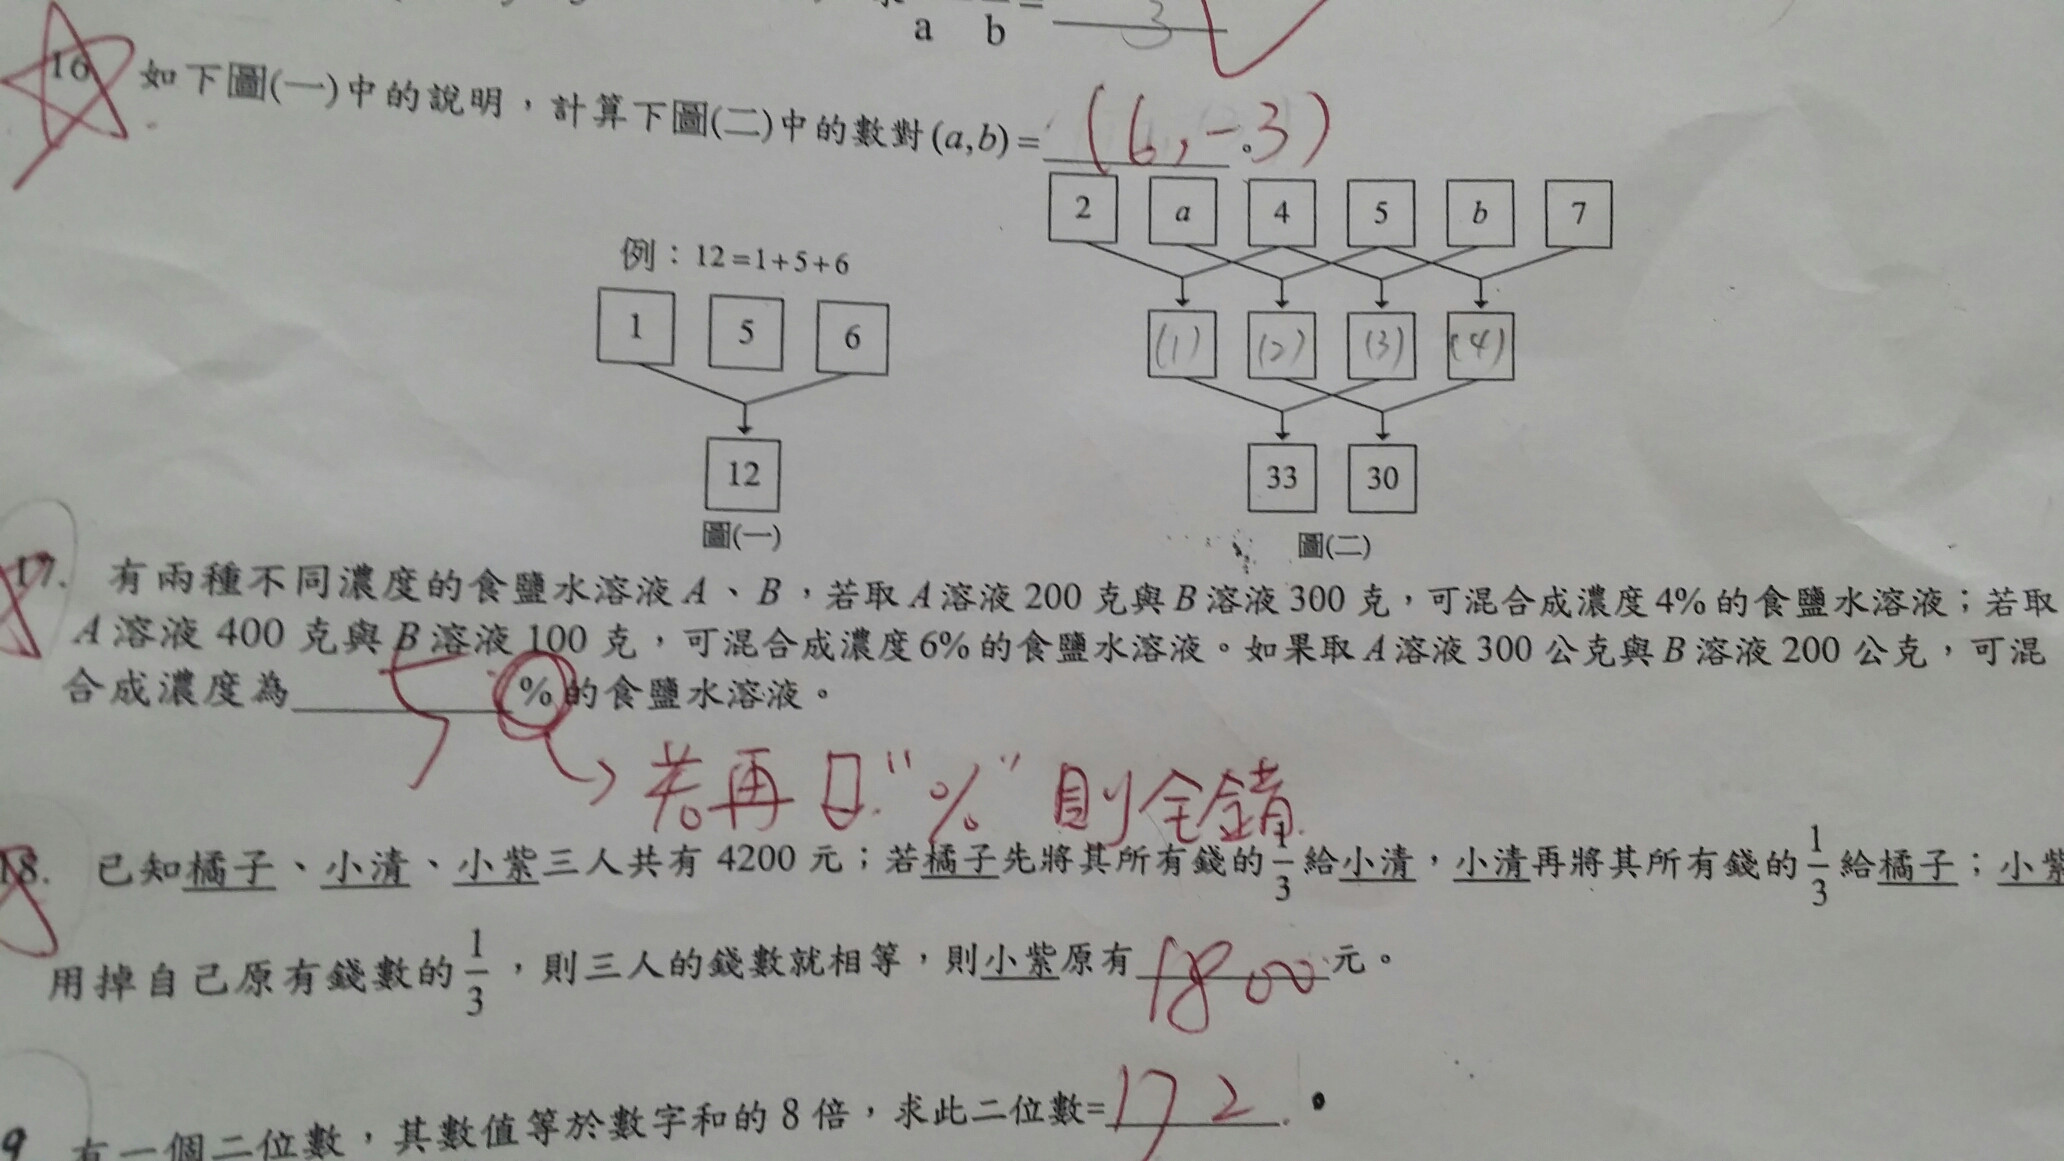 a b = 3
16. 如下圖(一)中的說明，計算下圖(二)中的數對(a,b)= (6,-3) 。
2 a 4 5 b 7
例：12=1+5+6
1 5 6
(1) (2) (3) (4)
12
33 30
圖(一)
圖(二)
17. 有兩種不同濃度的食鹽水溶液A、B，若取A溶液200克與B溶液300克，可混合成濃度4%的食鹽水溶液；若取
A溶液400克與B溶液100克，可混合成濃度6%的食鹽水溶液。如果取A溶液300公克與B溶液200公克，可混
合成濃度為 % 的食鹽水溶液。
若再 "%" 則全錯.
18. 已知橘子、小清、小紫三人共有4200元；若橘子先將其所有錢的1/3給小清，小清再將其所有錢的1/3給橘子；小紫
用掉自己原有錢數的1/3，則三人的錢數就相等，則小紫原有 1800 元。
9 有一個二位數，其數值等於數字和的8倍，求此二位數= 72 .